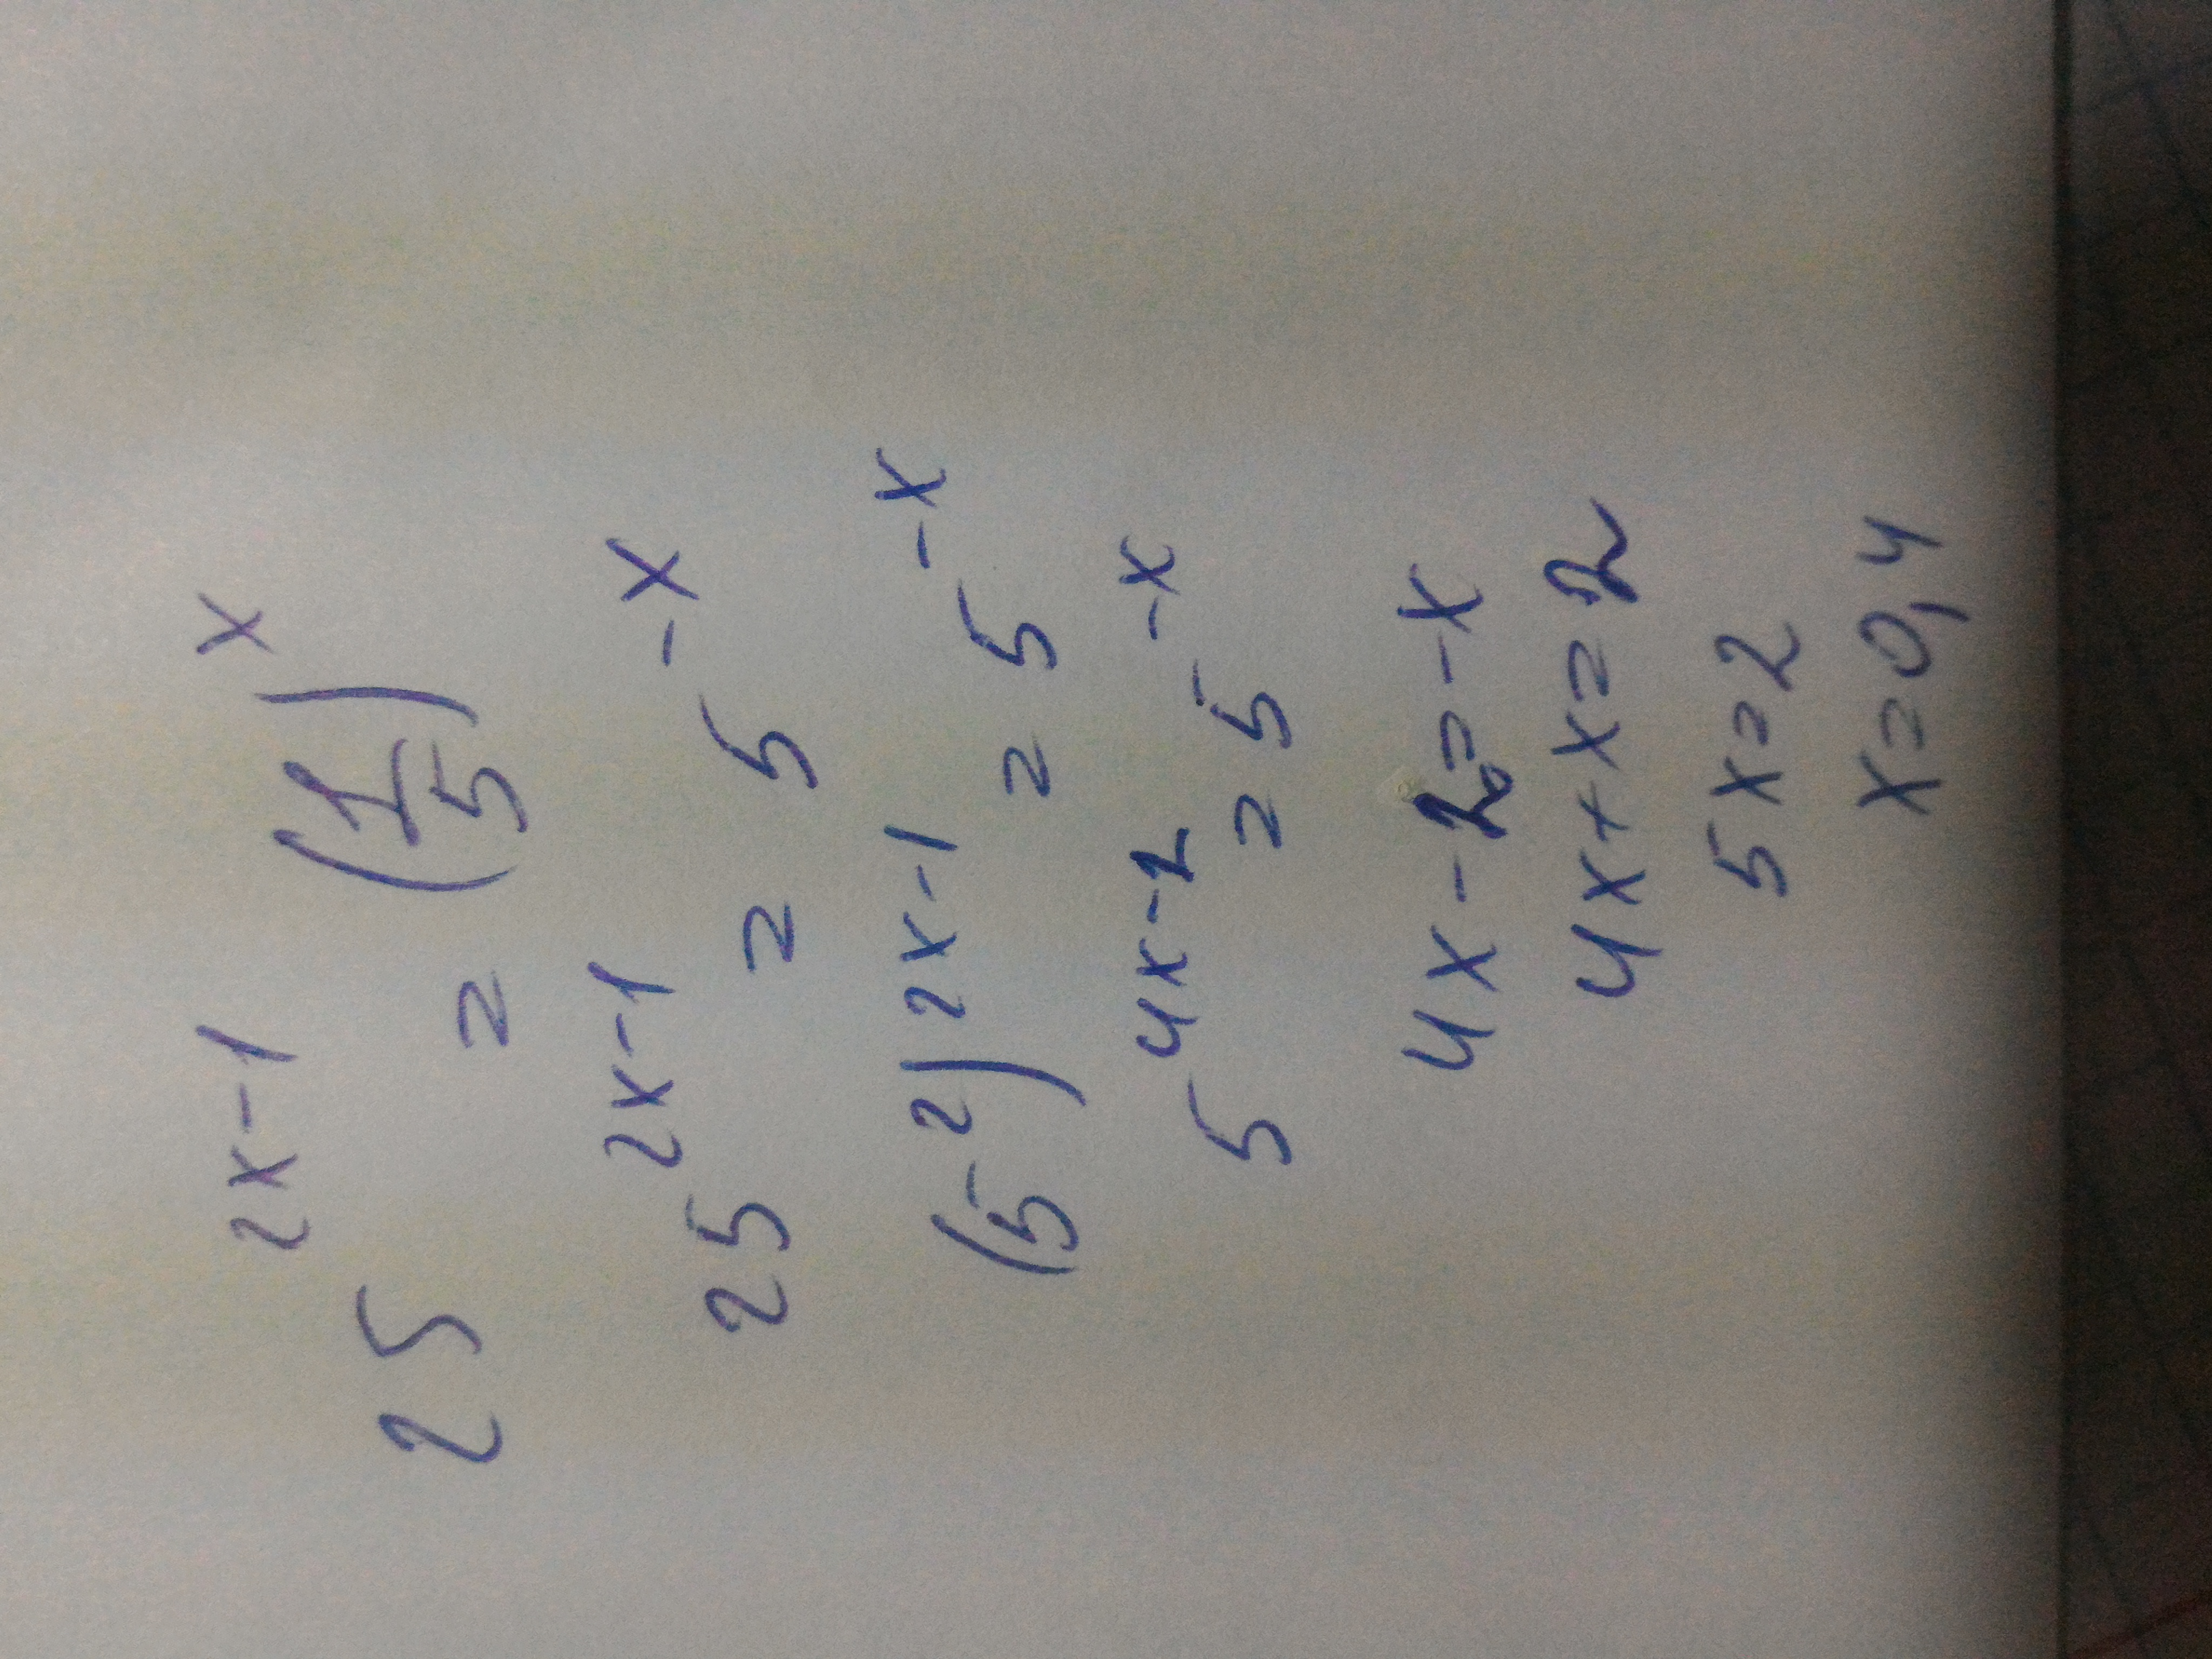 25^(2x-1) = (1/5)^x
25^(2x-1) = 5^(-x)
(5^2)^(2x-1) = 5^(-x)
5^(4x-2) = 5^(-x)
4x-2=-x
4x+x=2
5x=2
x=0,4